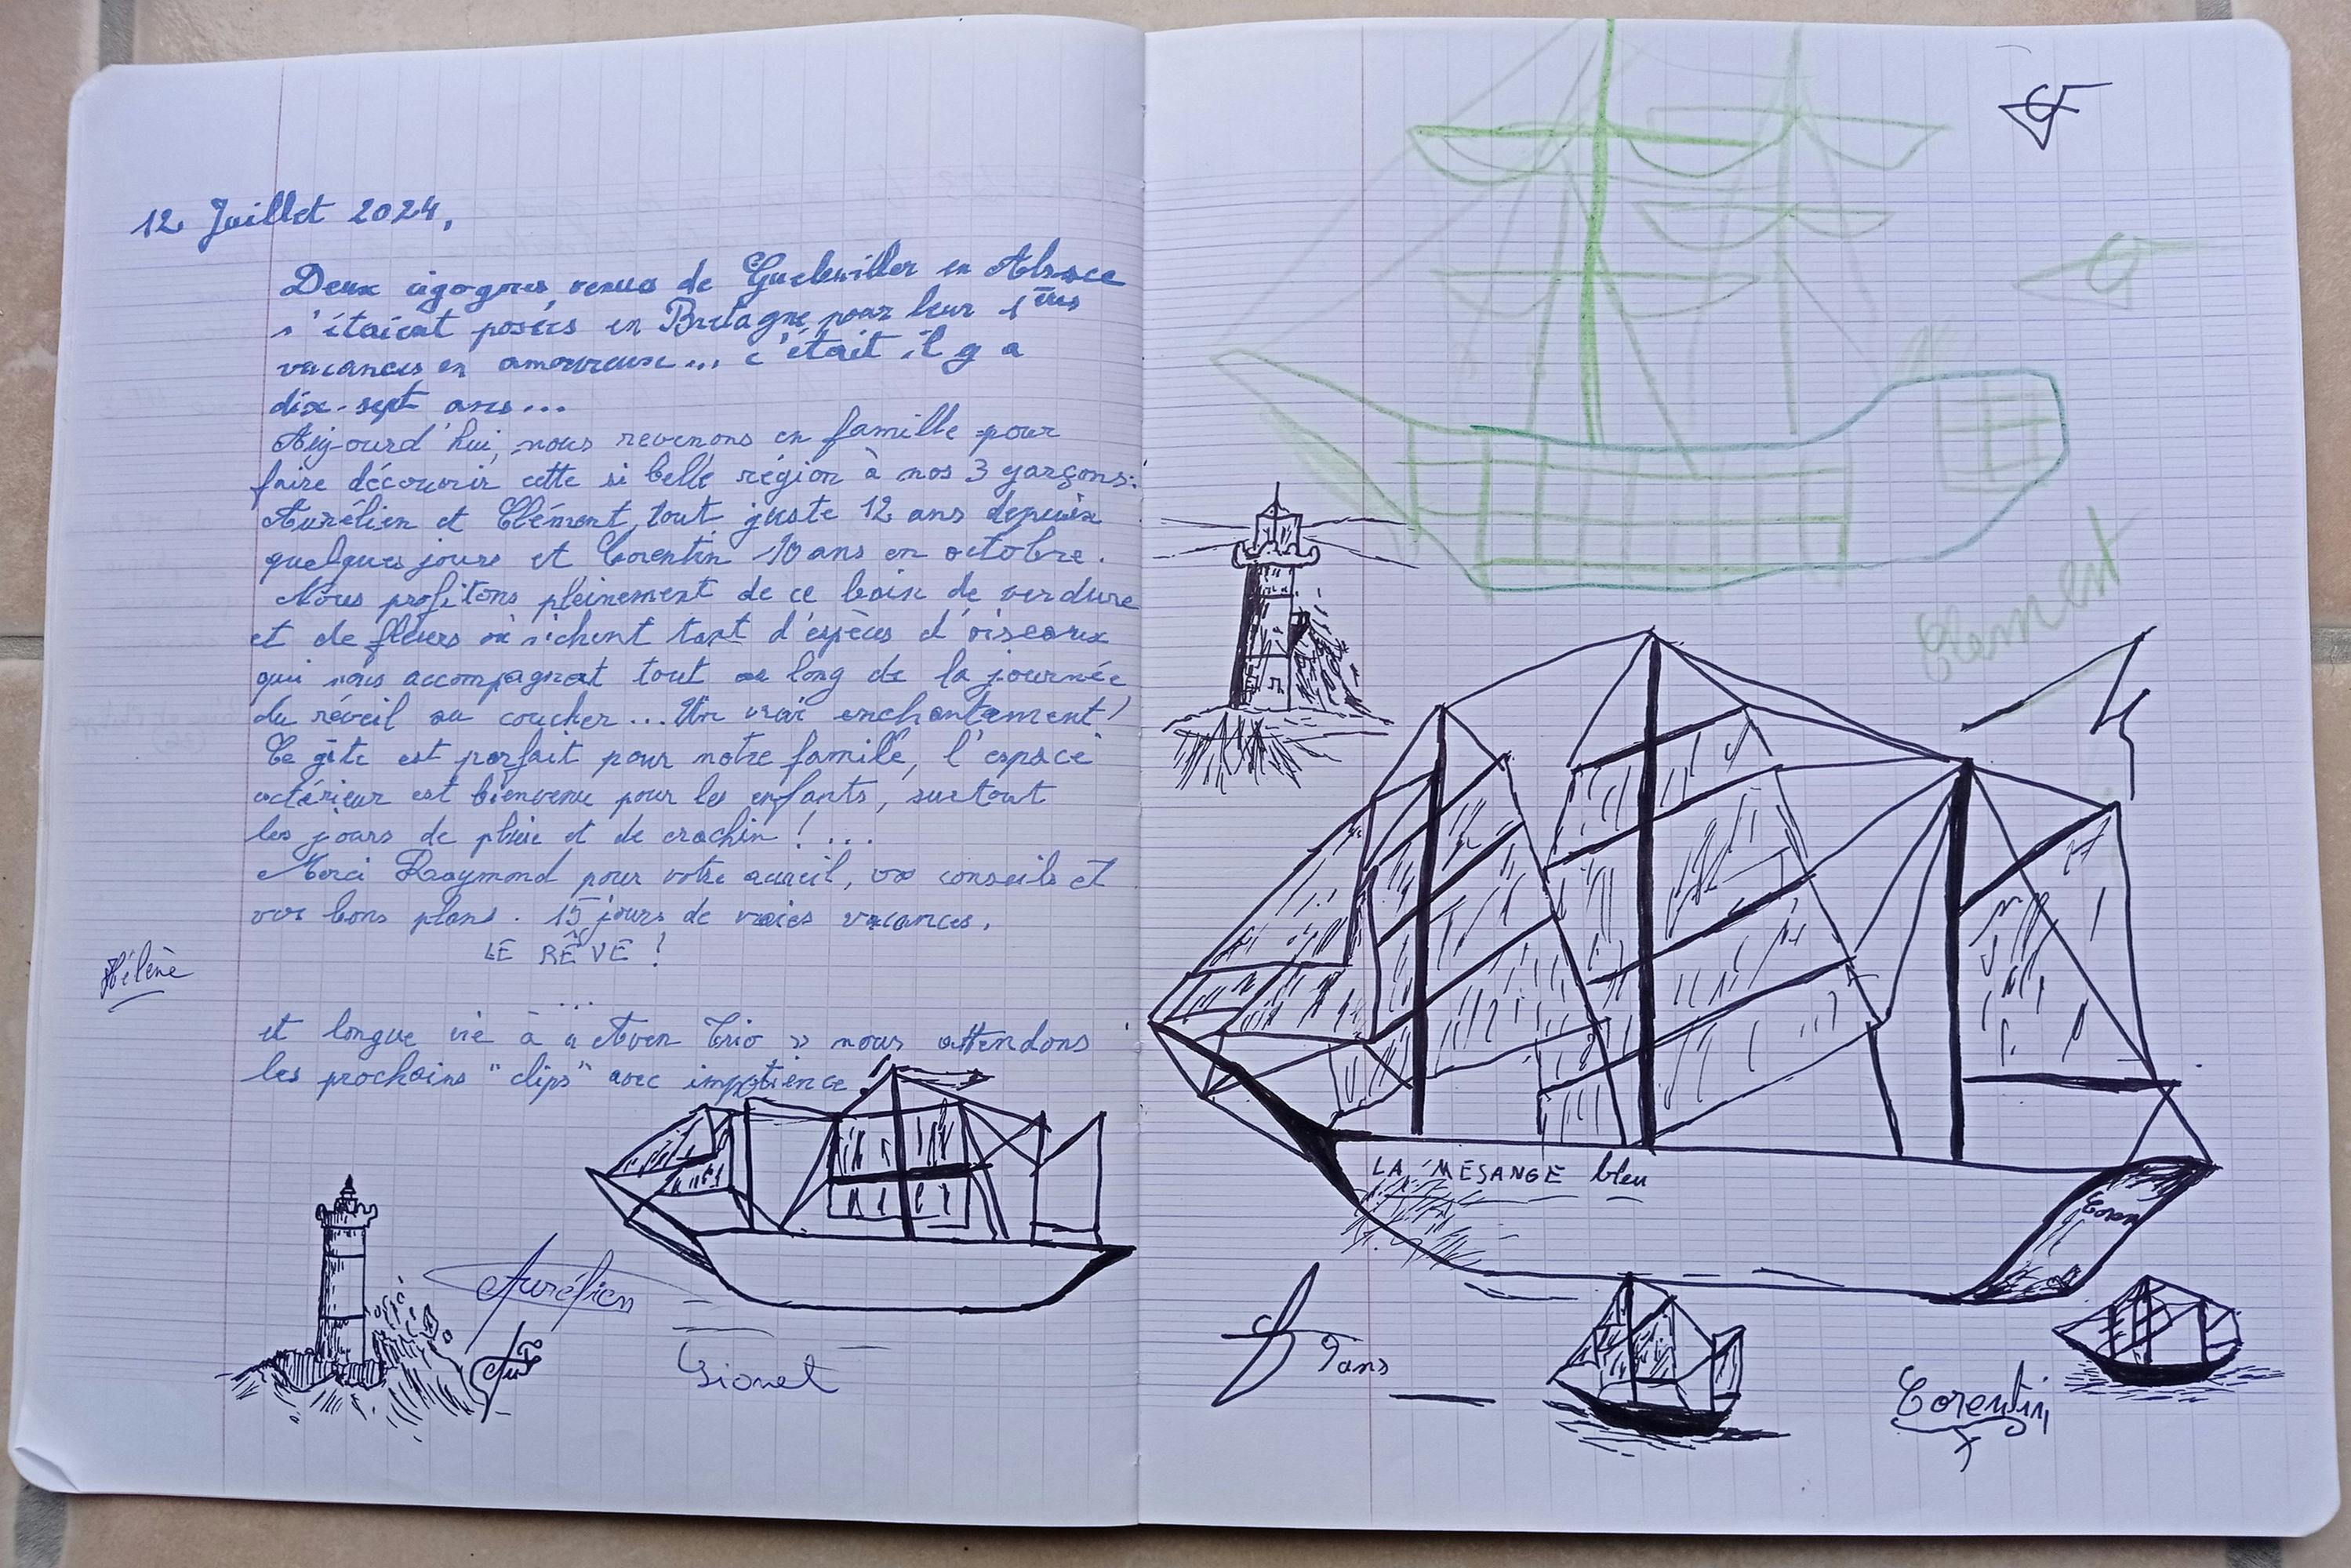 12 Juillet 2024,
Deux cigognes, venues de Guebwiller en Alsace
s'étaient posées en Bretagne pour leur 1ères
vacances en amoureux... c'était il y a
dix-sept ans...
Aujourd'hui, nous revenons en famille pour
faire découvrir cette si belle région à nos 3 garçons:
Aurélien et Clément, tout juste 12 ans depuis
quelques jours et Corentin 10 ans en octobre.
Nous profitons pleinement de ce bain de verdure
et de fleurs où nichent tant d'espèces d'oiseaux
qui nous accompagnent tout au long de la journée
du réveil au coucher... Un vrai enchantement!
Ce gîte est parfait pour notre famille, l'espace
extérieur est bienvenu pour les enfants, surtout
les jours de pluie et de crachin !...
Merci Raymond pour votre accueil, vos conseils et
vos bons plans. 15 jours de vraies vacances.
LE RÊVE !
Hélène
...
et longue vie à « Aven Trio » nous attendons
les prochains "clips" avec impatience
Aurélien
Clément
LA MESANGE bleu
Coren
9 ans
Corentin